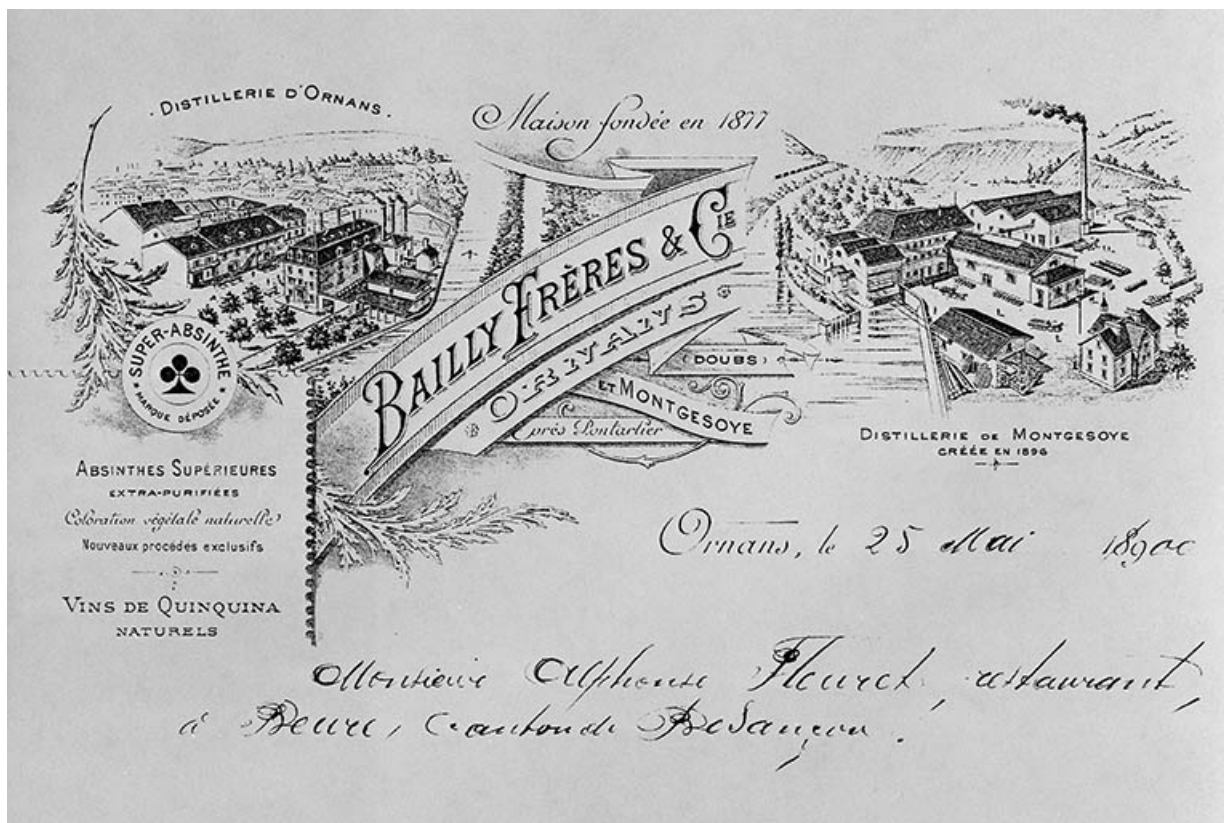 DISTILLERIE D'ORNANS.
Maison fondée en 1877
BAILLY FRÈRES & CIE
ORNANS
(DOUBS)
ET MONTGESOYE
près Pontarlier
SUPER-ABSINTHE
MARQUE DÉPOSÉE
DISTILLERIE DE MONTGESOYE
CRÉÉE EN 1896
ABSINTHES SUPÉRIEURES
EXTRA-PURIFIÉES
Coloration végétale naturelle
Nouveaux procédés exclusifs
VINS DE QUINQUINA
NATURELS
Ornans, le 25 Mai 18900
Monsieur Alphonse Fleuret, restaurant,
à Beure, Canton de Besançon.